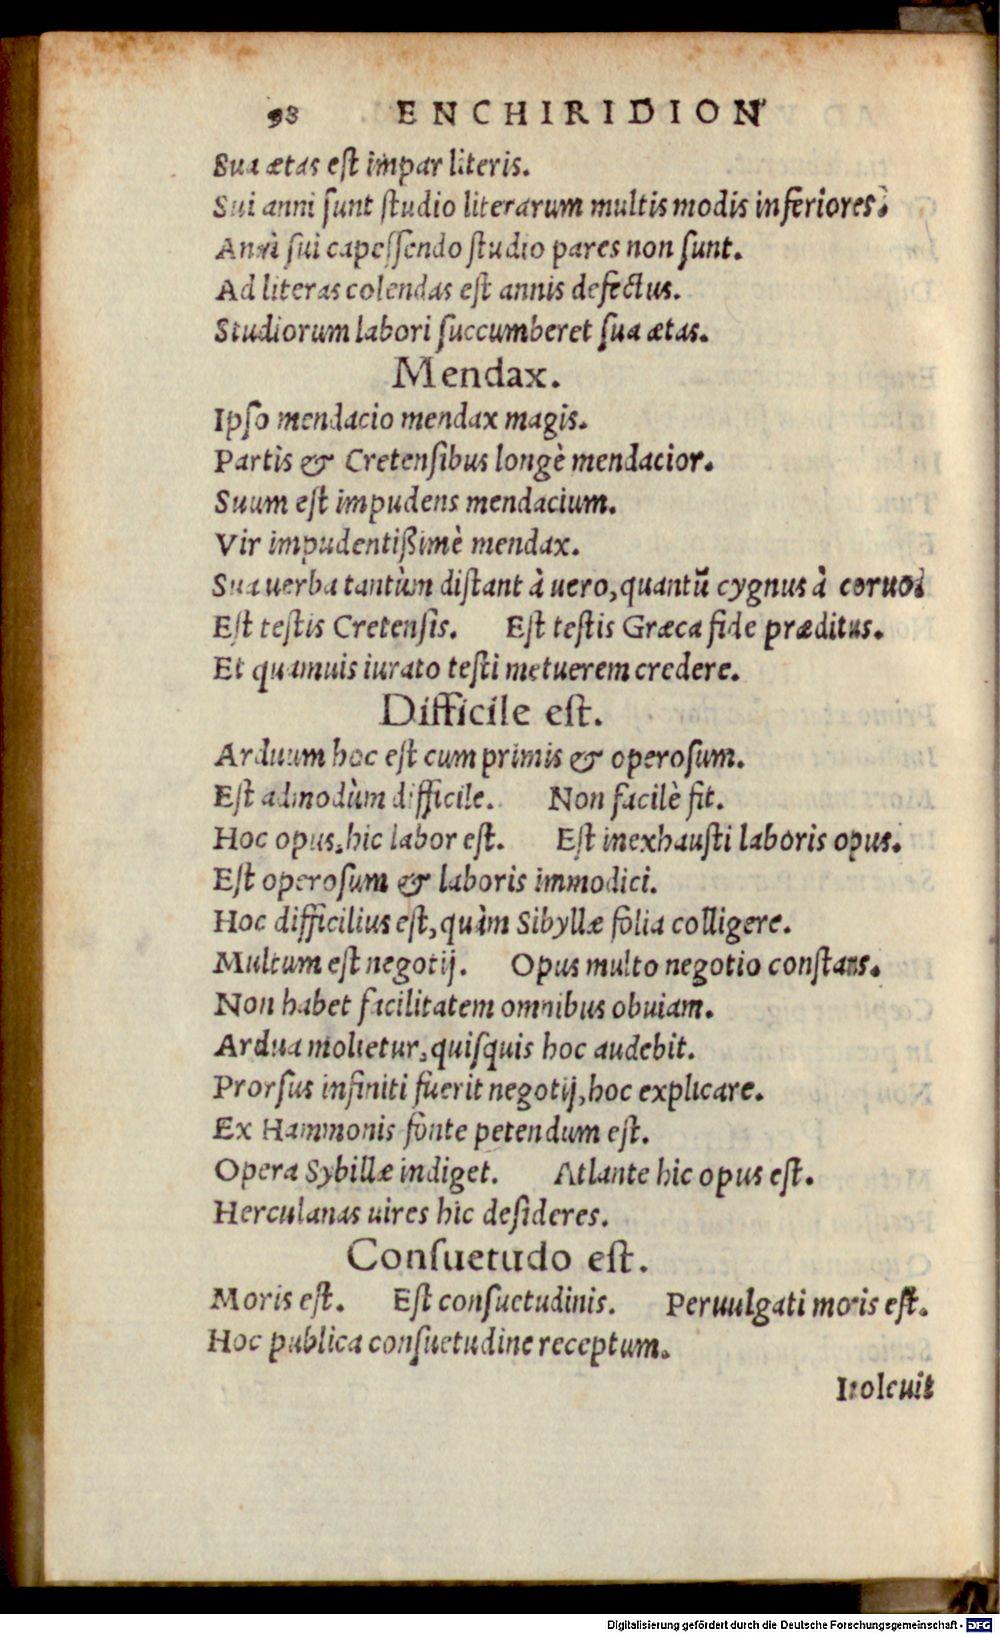 98 ENCHIRIDION
Sua ætas eſt impar literis.
Sui anni ſunt ſtudio literarum multis modis inferiores.
Anni ſui capeſſendo ſtudio pares non ſunt.
Ad literas colendas eſt annis defectus.
Studiorum labori ſuccumberet ſua ætas.
Mendax.
Ipſo mendacio mendax magis.
Partis & Cretenſibus longè mendacior.
Suum eſt impudens mendacium.
Vir impudentißimè mendax.
Sua uerba tantùm diſtant à uero, quantũ cygnus à coruo.
Eſt teſtis Cretenſis. Eſt teſtis Græca fide præditus.
Et quamuis iurato teſti metuerem credere.
Difficile eſt.
Arduum hoc eſt cum primis & operoſum.
Eſt admodùm difficile. Non facilè fit.
Hoc opus, hic labor eſt. Eſt inexhauſti laboris opus.
Eſt operoſum & laboris immodici.
Hoc difficilius eſt, quàm Sibyllæ folia colligere.
Multum eſt negotij. Opus multo negotio conſtans.
Non habet facilitatem omnibus obuiam.
Ardua molietur, quiſquis hoc audebit.
Prorſus infiniti fuerit negotij, hoc explicare.
Ex Hammonis fonte petendum eſt.
Opera Sybillæ indiget. Atlante hic opus eſt.
Herculanas uires hic deſideres.
Conſuetudo eſt.
Moris eſt. Eſt conſuetudinis. Peruulgati moris eſt.
Hoc publica conſuetudine receptum.
Inoleuit
Digitalisierung gefördert durch die Deutsche Forschungsgemeinschaft - DFG